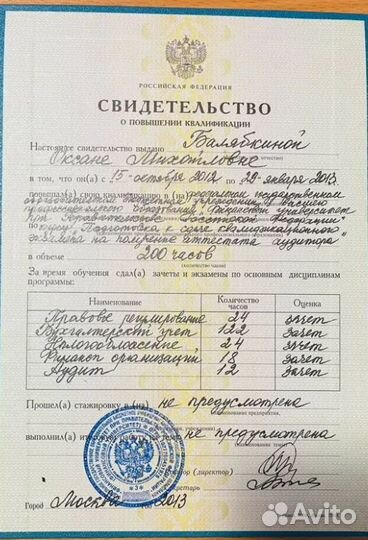 РОССИЙСКАЯ ФЕДЕРАЦИЯ
СВИДЕТЕЛЬСТВО
О ПОВЫШЕНИИ КВАЛИФИКАЦИИ
Настоящее свидетельство выдано Балябкиной
Оксане Михайловне
в том, что он(а) с 15 октября 2012 по 29 января 2013
повысил(а) свою квалификацию в (на) федеральном государственном
образовательном бюджетном учреждении высшего
профессионального образования "Финансовый университет
при Правительстве Российской Федерации"
по курсу "Подготовка к сдаче квалификационного
экзамена на получение аттестата аудитора"
в объеме 200 часов
(количество часов)
За время обучения сдал(а) зачеты и экзамены по основным дисциплинам
программы:
Наименование Количество часов Оценка
Правовое регулирование 24 зачет
Бухгалтерский учет 122 зачет
Налогообложение 24 зачет
Финансы организаций 18 зачет
Аудит 12 зачет
Прошел(а) стажировку в (на) не предусмотрена
(наименование предприятия,
выполнил(а) итоговую работу на тему не предусмотрена
(директор)
Секретарь
Город Москва 2013
Avito